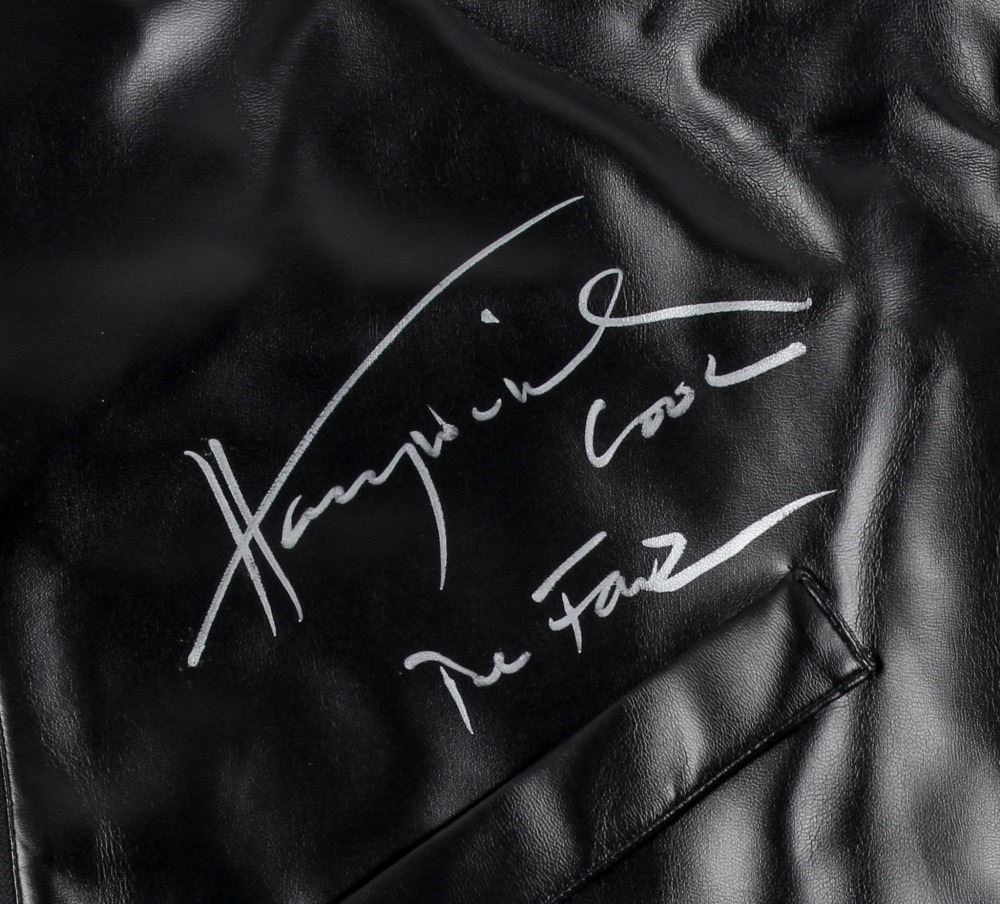 Henry Winkler
Cool
The Fonz